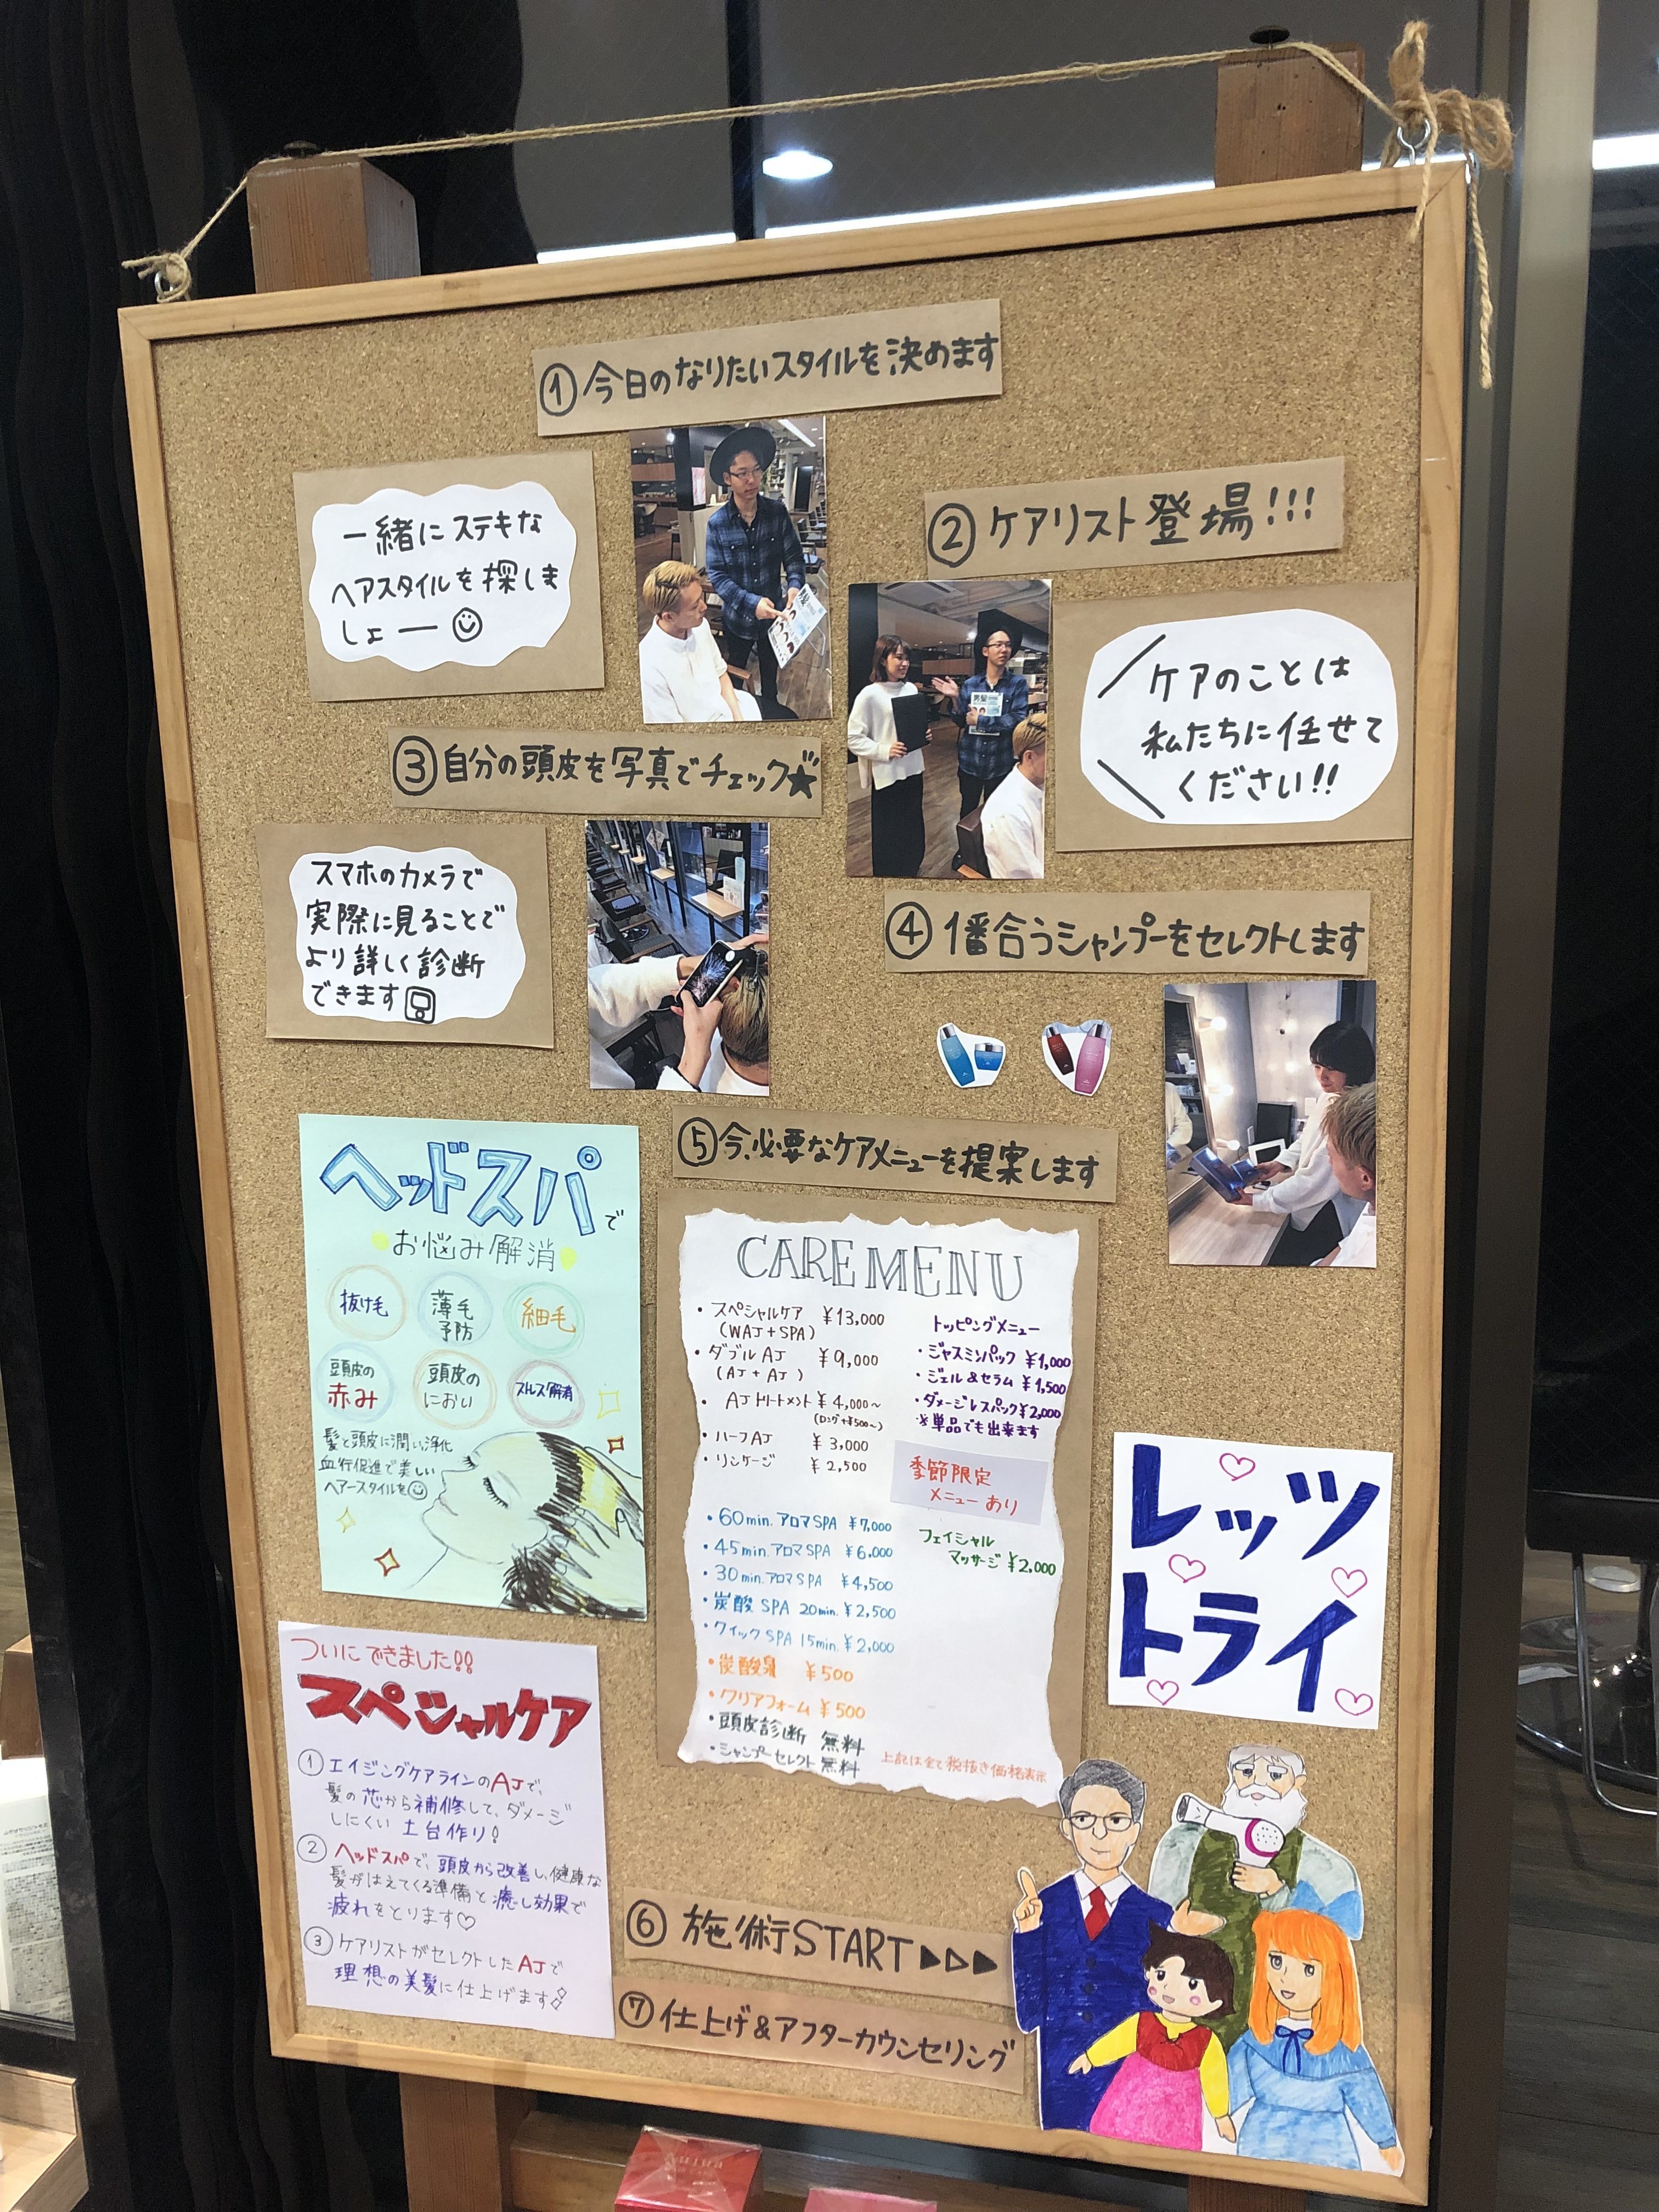 ①今日のなりたいスタイルを決めます
一緒にステキな
ヘアスタイルを探しま
しょー
②ケアリスト登場!!!
ケアのことは
私たちに任せて
ください!!
③自分の頭皮を写真でチェック★
スマホのカメラで
実際に見ることで
より詳しく診断
できます
④1番合うシャンプーをセレクトします
⑤今、必要なケアメニューを提案します
ヘッドスパで
お悩み解消
抜け毛
薄毛
予防
細毛
頭皮の
赤み
頭皮の
におい
ストレス解消
髪と頭皮に潤い浄化
血行促進で美しい
ヘアースタイルを
CARE MENU
・スペシャルケア ¥13,000
(WAJ+SPA)
・ダブルAJ ¥9,000
(AJ+AJ)
・AJトリートメント ¥4,000~
(ロング+¥500~)
・ハーフAJ ¥3,000
・リンケージ ¥2,500
・60min.アロマSPA ¥7,000
・45min.アロマSPA ¥6,000
・30min.アロマSPA ¥4,500
・炭酸SPA 20min. ¥2,500
・クイックSPA 15min. ¥2,000
・炭酸泉 ¥500
・クリアフォーム ¥500
・頭皮診断 無料
・シャンプーセレクト 無料
トッピングメニュー
・ジャスミンパック ¥1,000
・ジェル&セラム ¥1,500
・ダメージレスパック ¥2,000
※単品でも出来ます
季節限定
メニューあり
フェイシャル
マッサージ ¥2,000
上記は全て税抜き価格表示
レッツ
トライ
ついにできました!!
スペシャルケア
①エイジングケアラインのAJで、
髪の芯から補修して、ダメージ
しにくい土台作り!
②ヘッドスパで、頭皮から改善し、健康な
髪がはえてくる準備と癒し効果で
疲れをとります♡
③ケアリストがセレクトしたAJで
理想の美髪に仕上げます
⑥施術START▶▷▶
⑦仕上げ&アフターカウンセリング